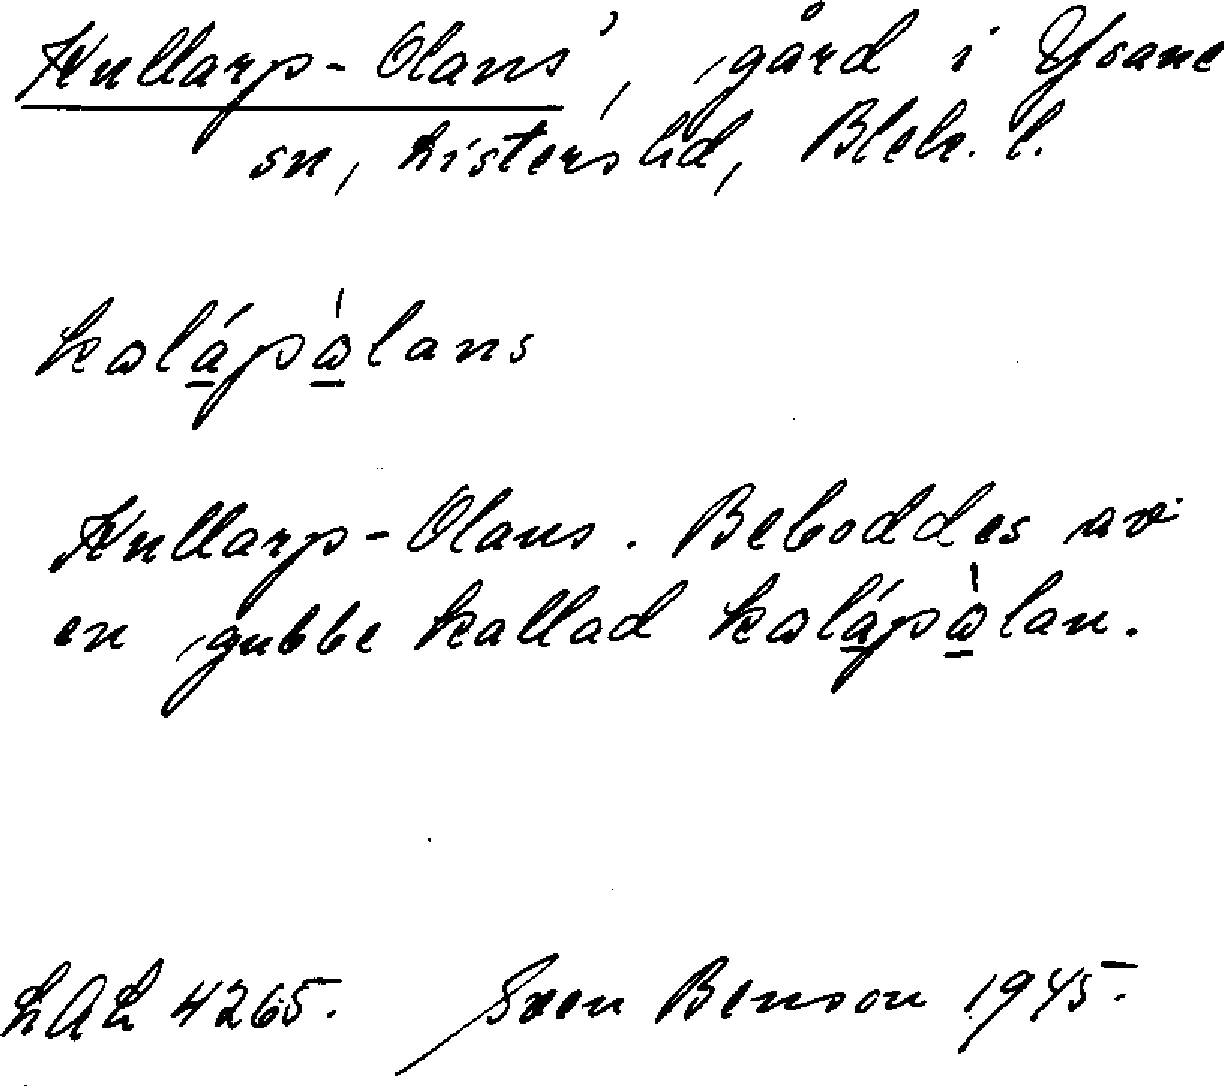 Kullarp-Olans', gård i Ysane
sn, Listers hd, Blek. l.
kɷlápɷ̀lans
Kullarp-Olans. Beboddes av
en gubbe kallad kɷlápɷ̀lan.
LAL 4265. Sven Benson 1945.